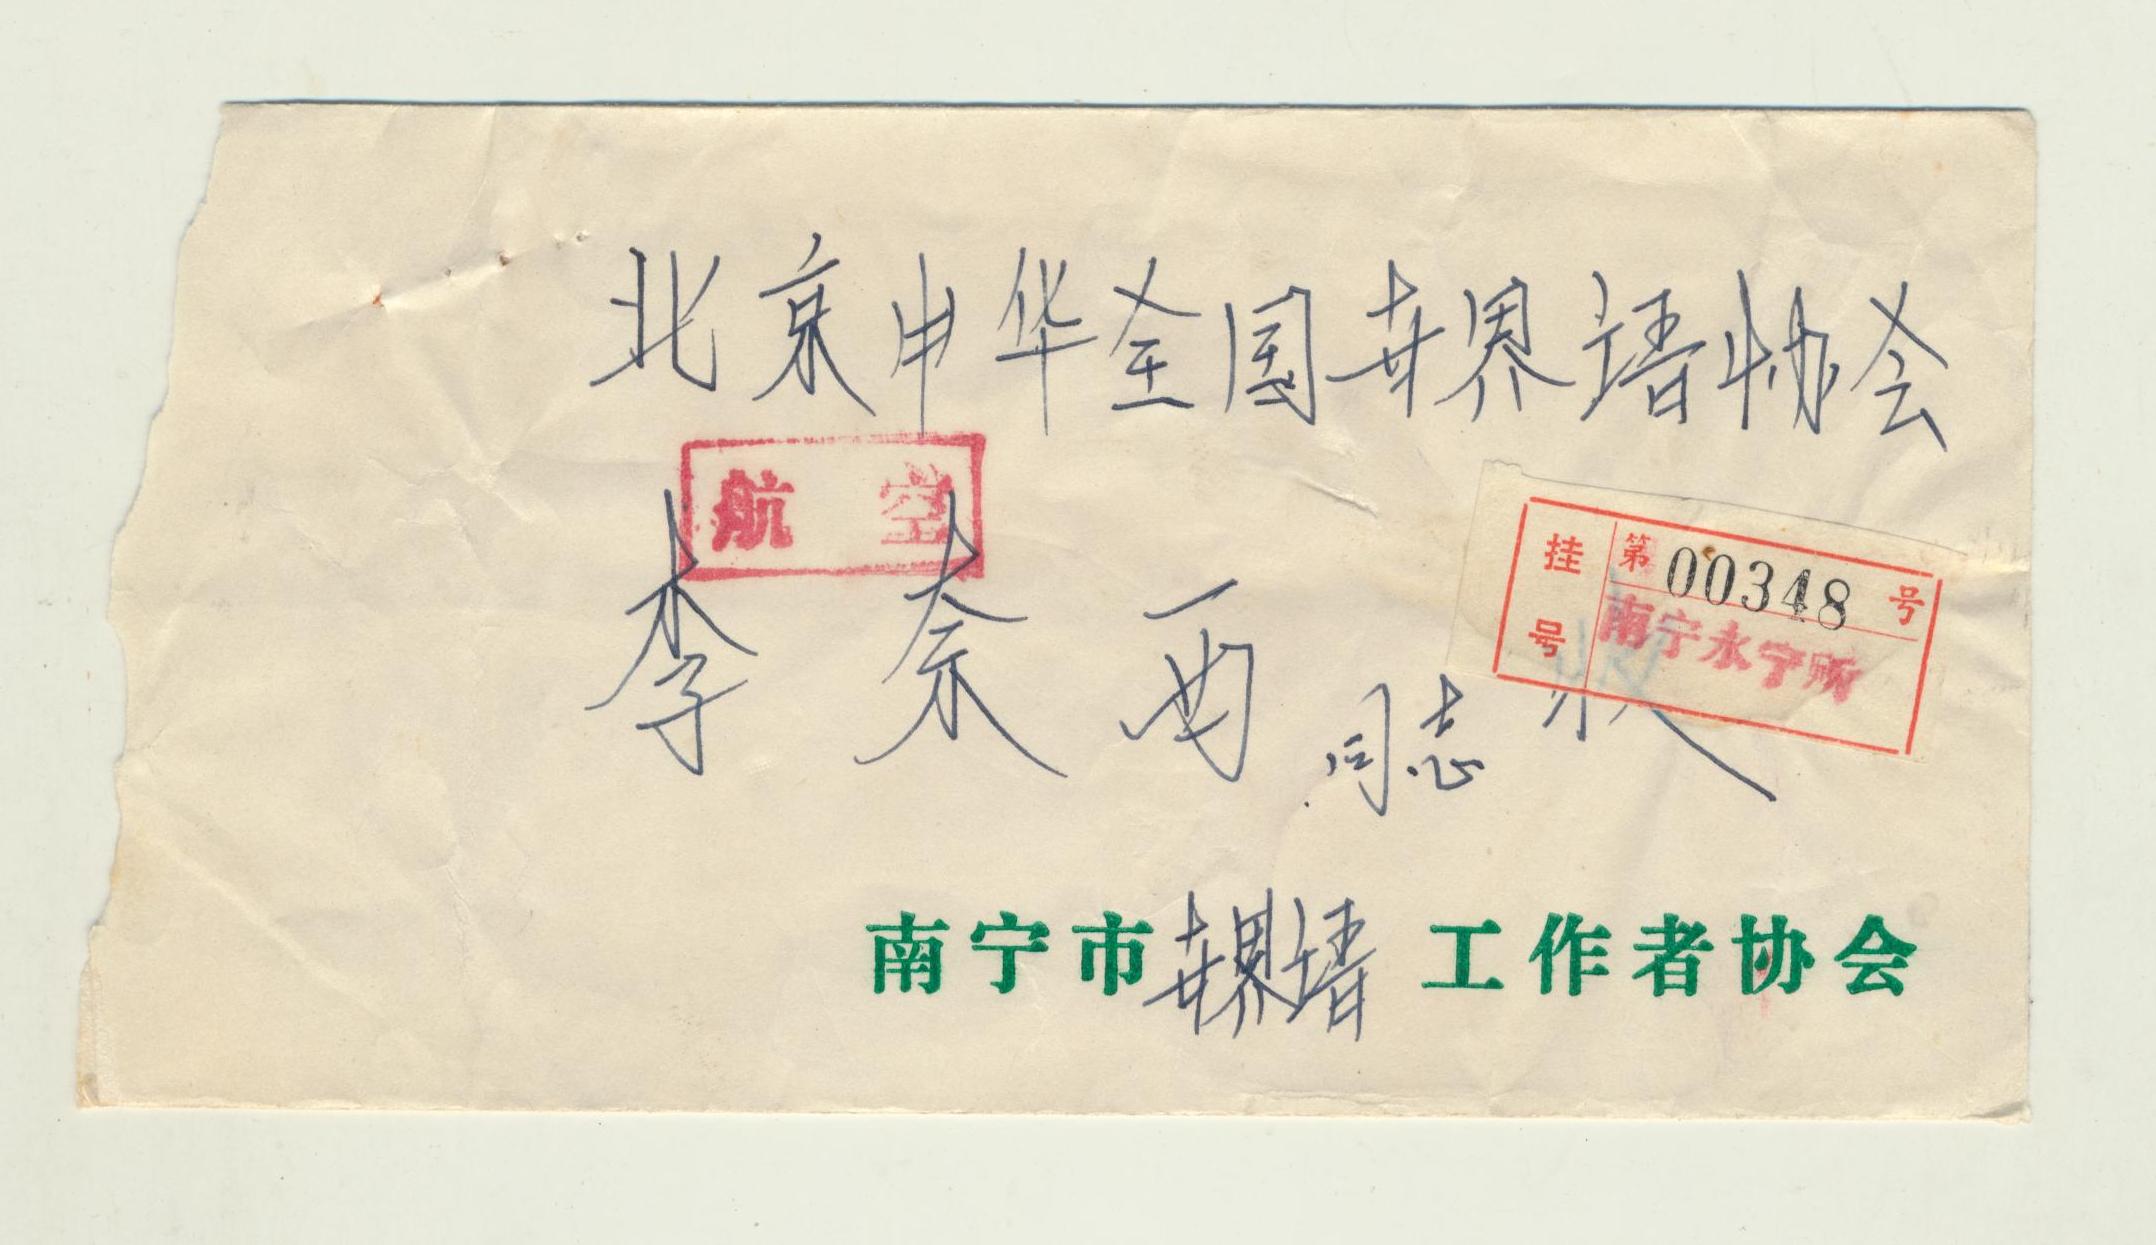 北京中华全国世界语协会
航空
李奈西同志收
挂号
第00348号
南宁永宁所
南宁市世界语工作者协会